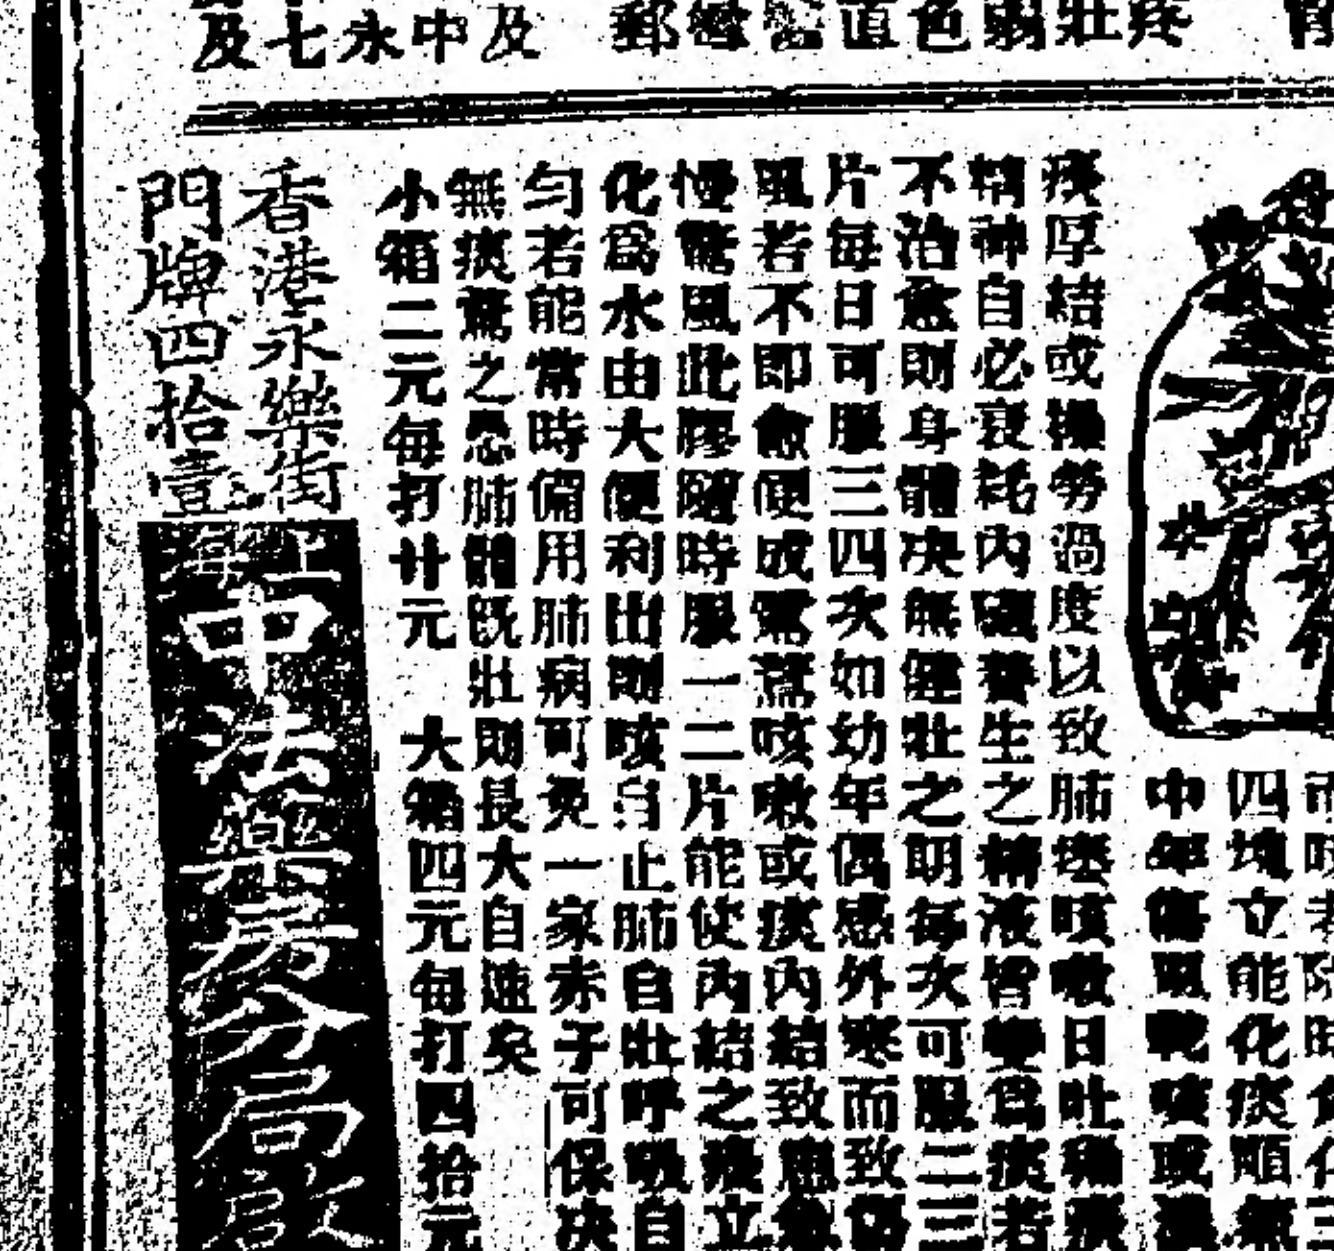 疼壯弱色道郵
及中永七及
四塊立能化痰順氣
中年傷風乾咳或
痰厚結或操勞過度以致肺痿咳嗽日吐稀痰
精神自必衰耗內礙養生之精液皆變爲痰若
不治愈則身體决無健壯之期每次可服二三
片每日可服三四次如幼年偶感外寒而致傷
風若不即愈便成驚咳嗽或痰內結致患急
慢驚風此膠隨時服一二片能使內結之痰立
化爲水由大便利出則咳自止肺自壯呼吸自
勻若能常時備用肺病可免一家赤子可保决
無痰驚之患肺體旣壯則長大自速矣
小箱二元每打廿元 大箱四元每打四拾元
香港永樂街
門牌四拾壹
中法藥房分局啟